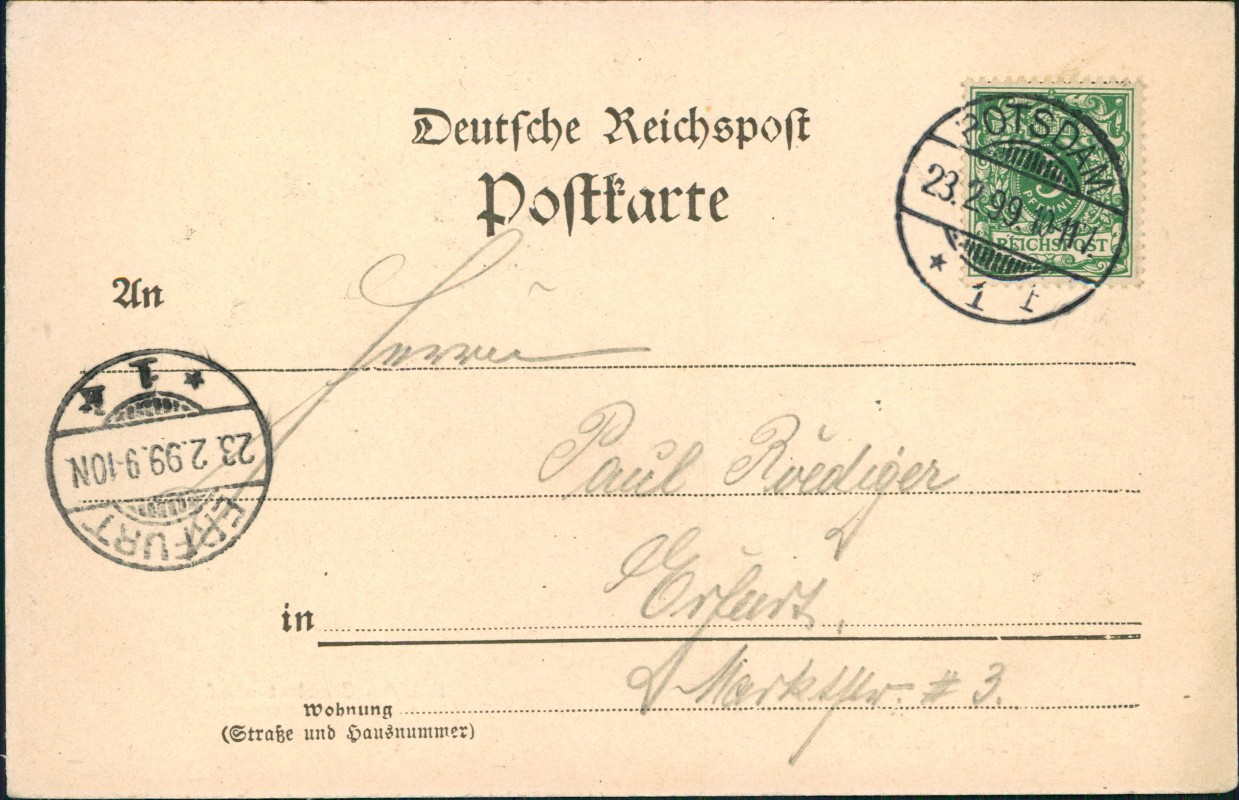 Deutsche Reichspost
Postkarte
POTSDAM
23.2.99.10-11V.
* 1 I
5
PFENNIG
REICHSPOST
An
Herrn
* 1 *
23.2.99.9-10N
ERFURT
Paul Roediger
in Erfurt,
Marktstr. # 3.
Wohnung
(Straße und Hausnummer)